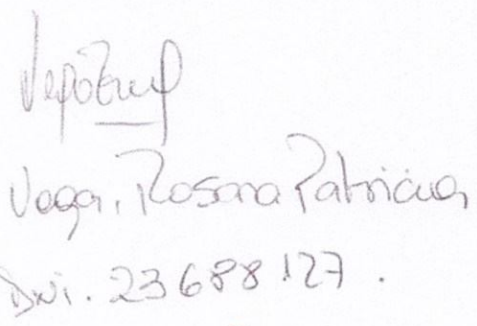 Vega, Rosana Patricia
Dni. 23688127.